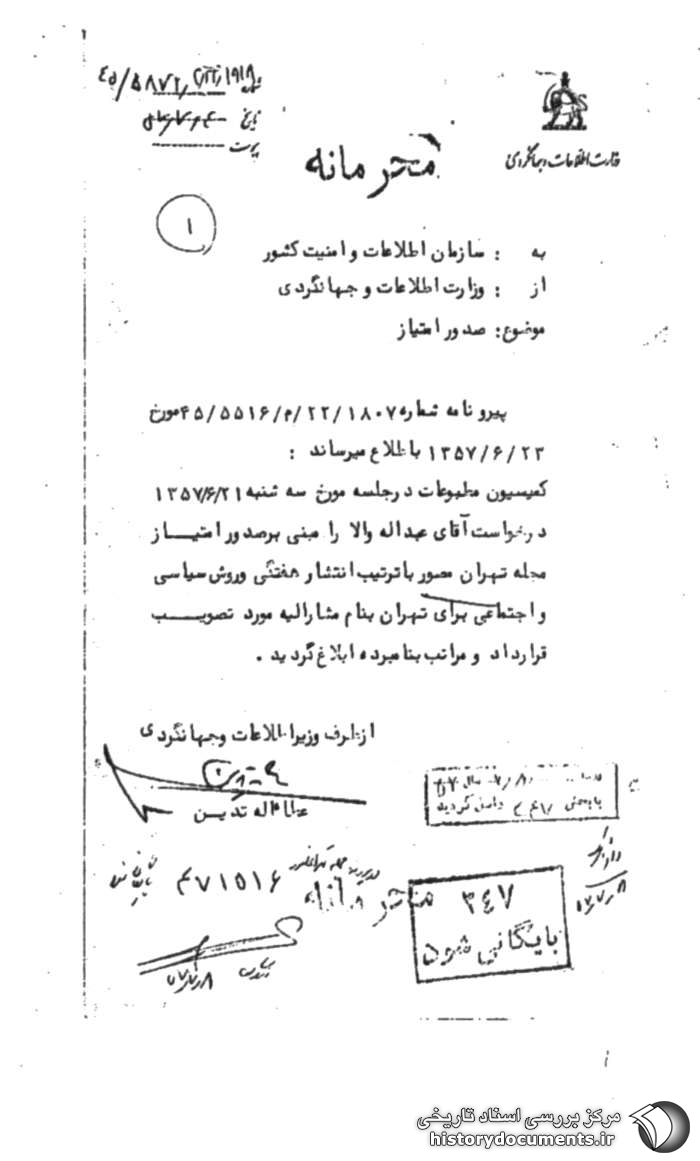 وزارت اطلاعات و جهانگردی
شماره
تاریخ
پیوست
محرمانه
۱
به : سازمان اطلاعات و امنیت کشور
از : وزارت اطلاعات و جهانگردی
موضوع: صدور امتیاز
پیرو نامه شماره ۱۸۰۷/۲۲/م/۴۵/۵۵۱۶ مورخ
۱۳۵۷/۶/۲۳ باطلاع میرساند :
کمیسیون مطبوعات درجلسه مورخ سه شنبه ۱۳۵۷/۶/۲۱
درخواست آقای عبداله والا را مبنی برصدور امتیاز
مجله تهران مصور باترتیب انتشار هفتگی وروش سیاسی
و اجتماعی برای تهران بنام مشارالیه مورد تصویب
قرارداد و مراتب بنامبرده ابلاغ گردید .
ازطرف وزیراطلاعات وجهانگردی
عطااله تدین
داخل گردید
۴۷۱۵۱۶
محرمانه
۳۴۷
بایگانی شود
مرکز بررسی اسناد تاریخی
historydocuments.ir